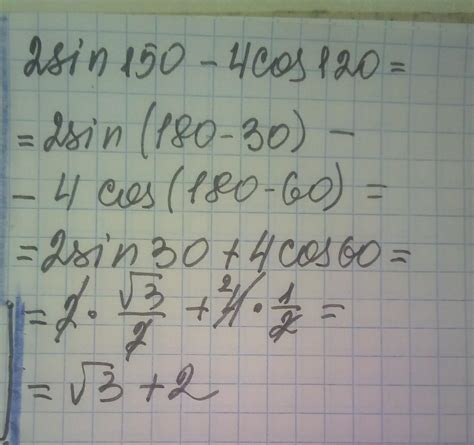 2sin 150 - 4cos 120 =
= 2sin (180-30) -
- 4 cos (180-60) =
= 2sin 30 + 4cos 60 =
= 2 · √3/2 + 4 2 · 1/2 =
= √3 + 2